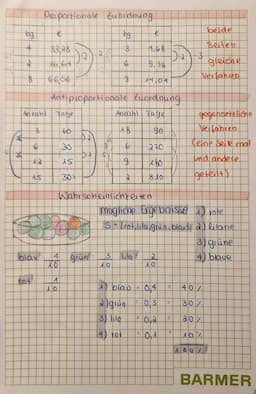 Proportionale Zuordnung
kg €
kg €
beide
Seiten
gleiche
Verfahren
4 33,28
3 4,68
2
6 9,36
8 66,56
9 14,04
Antiproportionale Zuordnung
Anzahl Tage
Anzahl Tage
3 60
18 90
6 30
6 270
12 15
9 180
15 30
2 810
Verfahren
(eine Seite mal
und andere
geteilt)
Wahrscheinlichkeiten
mögliche Ergebnisse
S = {rot, lila, grün, blau}
1) rote
2) lilane
3) grüne
4) blaue
blau 4/10 grün 3/10 lila 2/10
rot 1/10
1) blau = 0,4 = 40%
2) grün = 0,3 = 30%
3) lila = 0,2 = 20%
4) rot = 0,1 = 10%
100%
BARMER